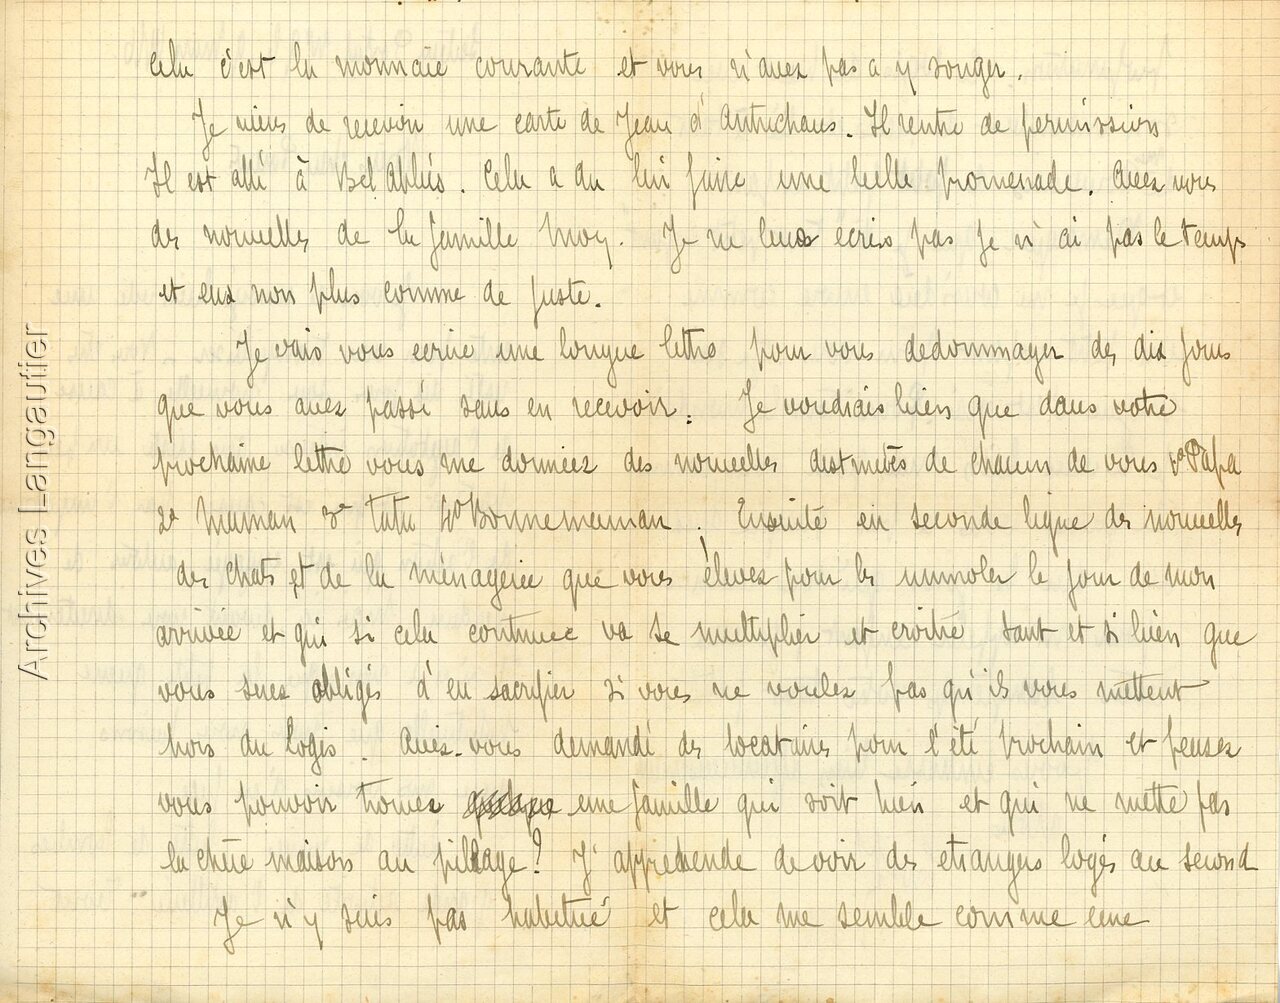 Cela c'est la monnaie courante et vous n'avez pas a y songer.
Je viens de recevoir une carte de Jean d'Antrechaus. Il rentre de permission
Il est allé à Bel Abbès. Cela a du lui faire une belle promenade. Avez vous
des nouvelles de la famille Moy. Je ne leur ecris pas je n'ai pas le temps
et eux non plus comme de juste.
Je vais vous ecrire une longue lettre pour vous dedommager des dix jours
que vous avez passé sans en recevoir. Je voudrais bien que dans votre
prochaine lettre vous me donniez des nouvelles de chacun de vous 1º Papa
2º Maman 3º tutu 4º Bonnemaman. Ensuite en seconde ligne des nouvelles
des chats et de la ménagerie que vous élevez pour les immoler le jour de mon
arrivée et qui si cela continue va se multiplier et croitre tant et si bien que
vous serez obligés d'en sacrifier si vous ne voulez pas qu'ils vous mettent
hors du logis. Avez-vous demandé des locataires pour l'été prochain et pensez
vous pouvoir trouver une famille qui soit bien et qui ne mette pas
la chère maison au pillage? J'apprehende de voir des etrangers logés au second
Je n'y suis pas habitué et cela me semble comme une
Archives Langautier